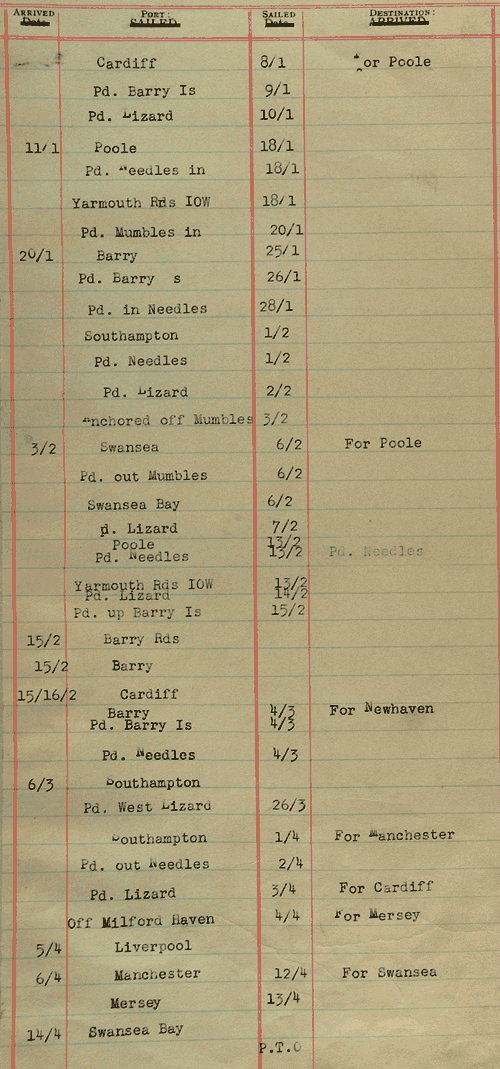 ARRIVED PORT: SAILED DESTINATION:
Date SAILED Date ARRIVED
Cardiff 8/1 For Poole
Pd. Barry Is 9/1
Pd. Lizard 10/1
11/1 Poole 18/1
Pd. Needles in 18/1
Yarmouth Rds IOW 18/1
Pd. Mumbles in 20/1
20/1 Barry 25/1
Pd. Barry s 26/1
Pd. in Needles 28/1
Southampton 1/2
Pd. Needles 1/2
Pd. Lizard 2/2
Anchored off Mumbles 3/2
3/2 Swansea 6/2 For Poole
Pd. out Mumbles 6/2
Swansea Bay 6/2
pd. Lizard 7/2
Poole 13/2
Pd. Needles 13/2 Pd. Needles
Yarmouth Rds IOW 13/2
Pd. Lizard 14/2
Pd. up Barry Is 15/2
15/2 Barry Rds
15/2 Barry
15/16/2 Cardiff
Barry 4/3 For Newhaven
Pd. Barry Is 4/3
Pd. Needles 4/3
6/3 Southampton
Pd. West Lizard 26/3
Southampton 1/4 For Manchester
Pd. out Needles 2/4
Pd. Lizard 3/4 For Cardiff
Off Milford Haven 4/4 For Mersey
5/4 Liverpool
6/4 Manchester 12/4 For Swansea
Mersey 13/4
14/4 Swansea Bay
P.T.O